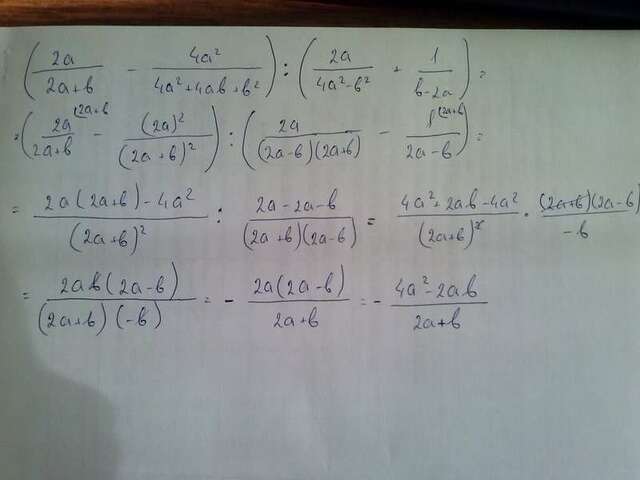 (2a/(2a+b) - 4a²/(4a²+4ab+b²)) : (2a/(4a²-b²) + 1/(b-2a)) =
= (2a^{(2a+b}/(2a+b) - (2a)²/(2a+b)²) : (2a/((2a-b)(2a+b)) - 1^{(2a+b}/(2a-b)) =
= (2a(2a+b)-4a²)/(2a+b)² : (2a-2a-b)/((2a+b)(2a-b)) = (4a²+2ab-4a²)/(2a+b)² · (2a+b)(2a-b)/(-b)
= 2ab(2a-b)/((2a+b)(-b)) = - 2a(2a-b)/(2a+b) = - (4a²-2ab)/(2a+b)